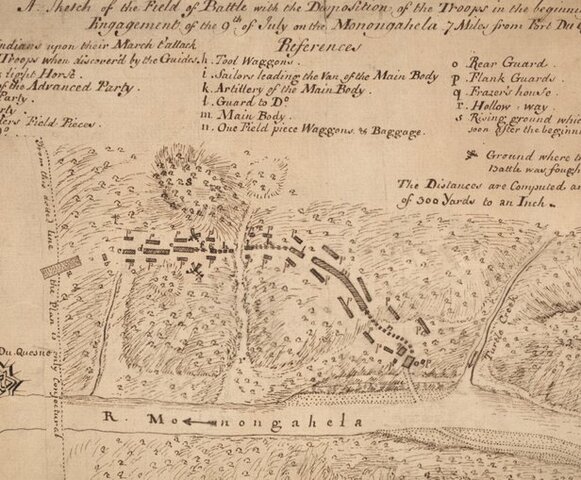 A Sketch of the Field of Battle with the Disposition of the Troops in the beginning
Engagement of the 9th of July on the Monongahela 7 Miles from Fort Du
Indians upon their March to attack
Troops when discover'd by the Guides.
light Horse.
of the Advanced Party
Party.
Field Pieces.
References
h. Tool Waggons.
i. Sailors leading the Van of the Main Body
k. Artillery of the Main Body.
l. Guard to Do
m. Main Body.
n. One Field piece Waggons & Baggage.
o Rear Guard.
p. Flank Guards.
q. Frazer's house.
r. Hollow way.
s Rising ground
soon after the
Ground where
battle was
The Distances are Computed
of 300 Yards to an Inch.
From this
line the Plan is only Conjectural
Du Quesne
s
Turtle Creek
R. Monongahela